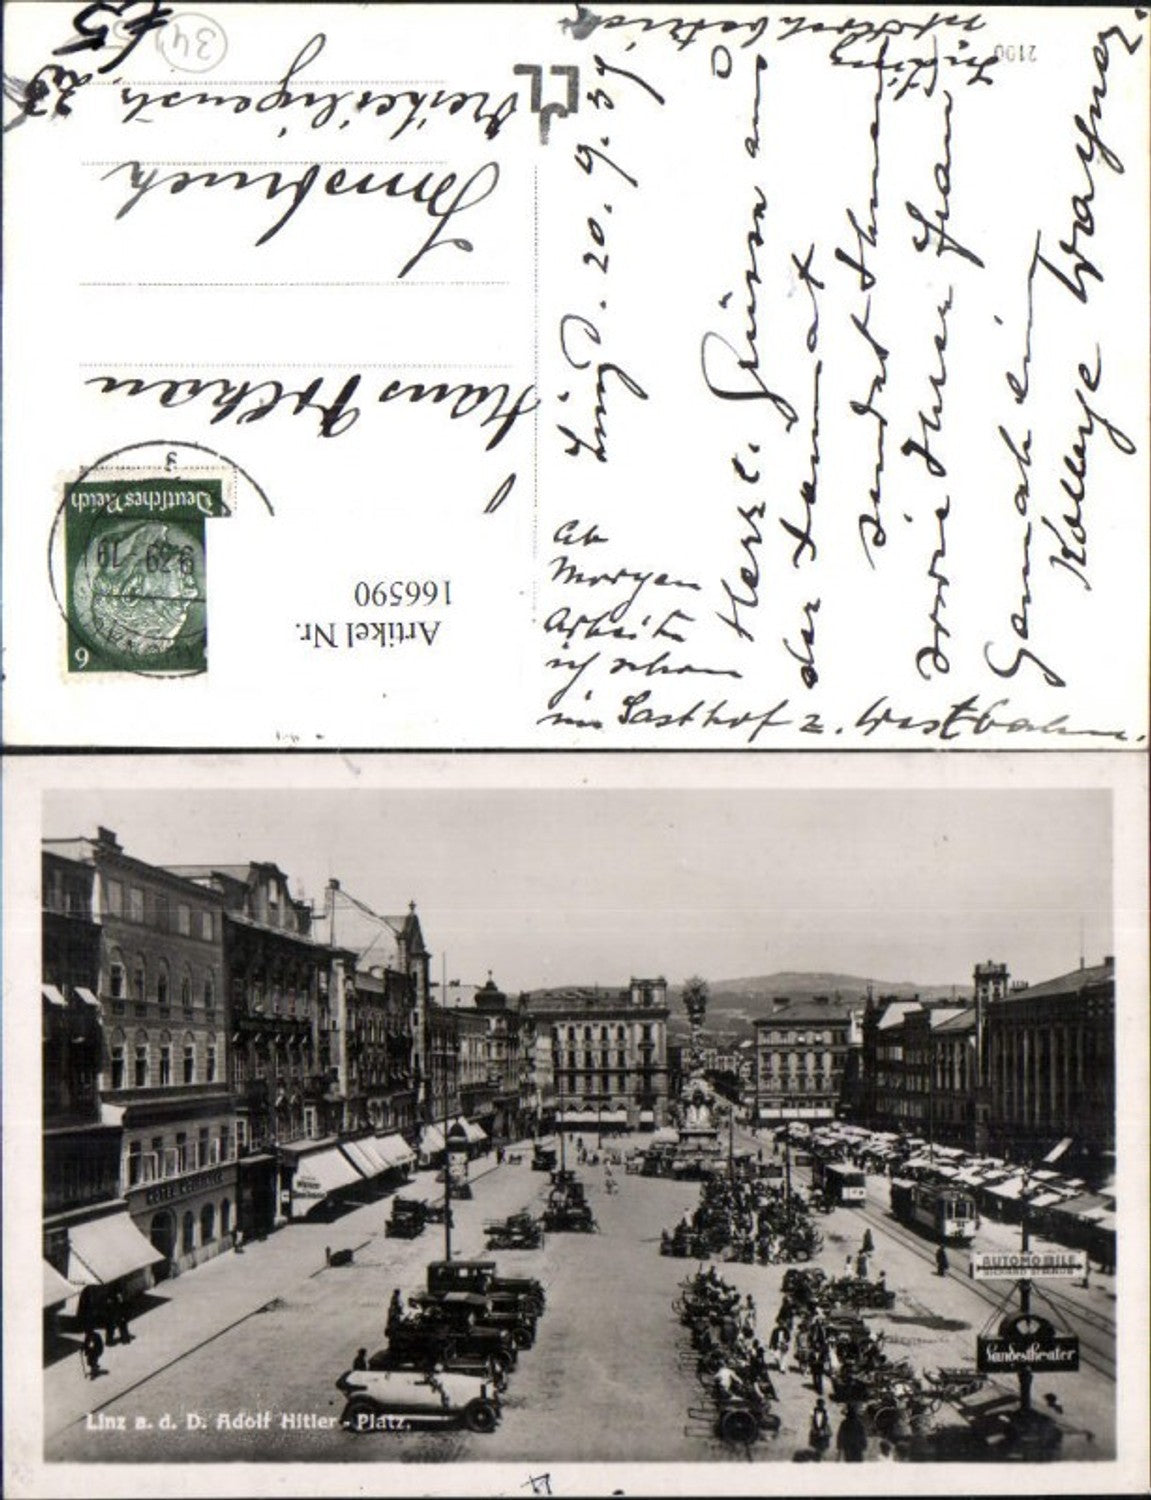 2100
Linz, d. 20. 9. 39
Herzl. Grüsse aus
der Heimat
sendet Ihnen
sowie Ihrer Frau
Gemahlin
Kollege Wagner
Ab
Morgen
Arbeite
ich schon
im Gasthof z. Westbahn.
34
Deutsches Reich
6
9.39 19
3
Artikel Nr.
166590
Hans
Innsbruck
Dreiheiligenstr.
Linz a. d. D. Adolf Hitler - Platz.
AUTOMOBILE
Landestheater